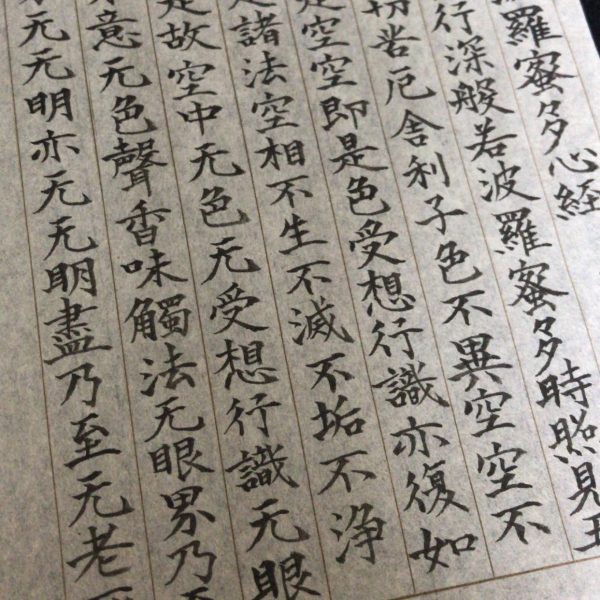 羅蜜多心経
行深般若波羅蜜多時照見五
切苦厄舎利子色不異空空不
是空空即是色受想行識亦復如
是諸法空相不生不滅不垢不浄
是故空中无色无受想行識无眼
意无色聲香味觸法无眼界乃
无无明亦无无明盡乃至无老